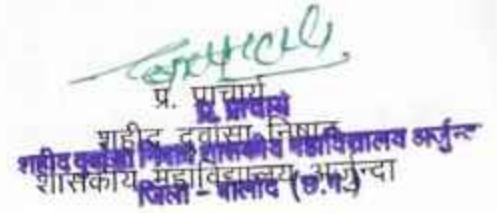 प्र. प्राचार्य
प्र. प्राचार्य
शहीद दुवासा निषाद
शहीद दुवासा निषाद शासकीय महाविद्यालय अर्जुन्दा
शासकीय महाविद्यालय, अर्जुन्दा
जिला - बालोद (छ.ग.)